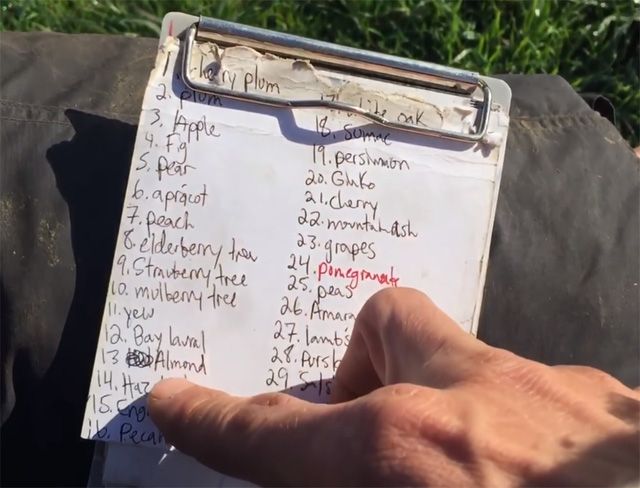 1. cherry plum
2. plum
3. Apple
4. Fig
5. pear
6. apricot
7. peach
8. elderberry tree
9. Strawberry tree
10. mulberry tree
11. yew
12. Bay laural
13 Almond
14. Haz
15. Eng
16. Pecan
17. oak
18. Sumac
19. persimmon
20. Ginko
21. cherry
22. mountain ash
23. grapes
24. pomegranate
25. peas
26. Amara
27. lamb's
28. Pursl
29. Sals